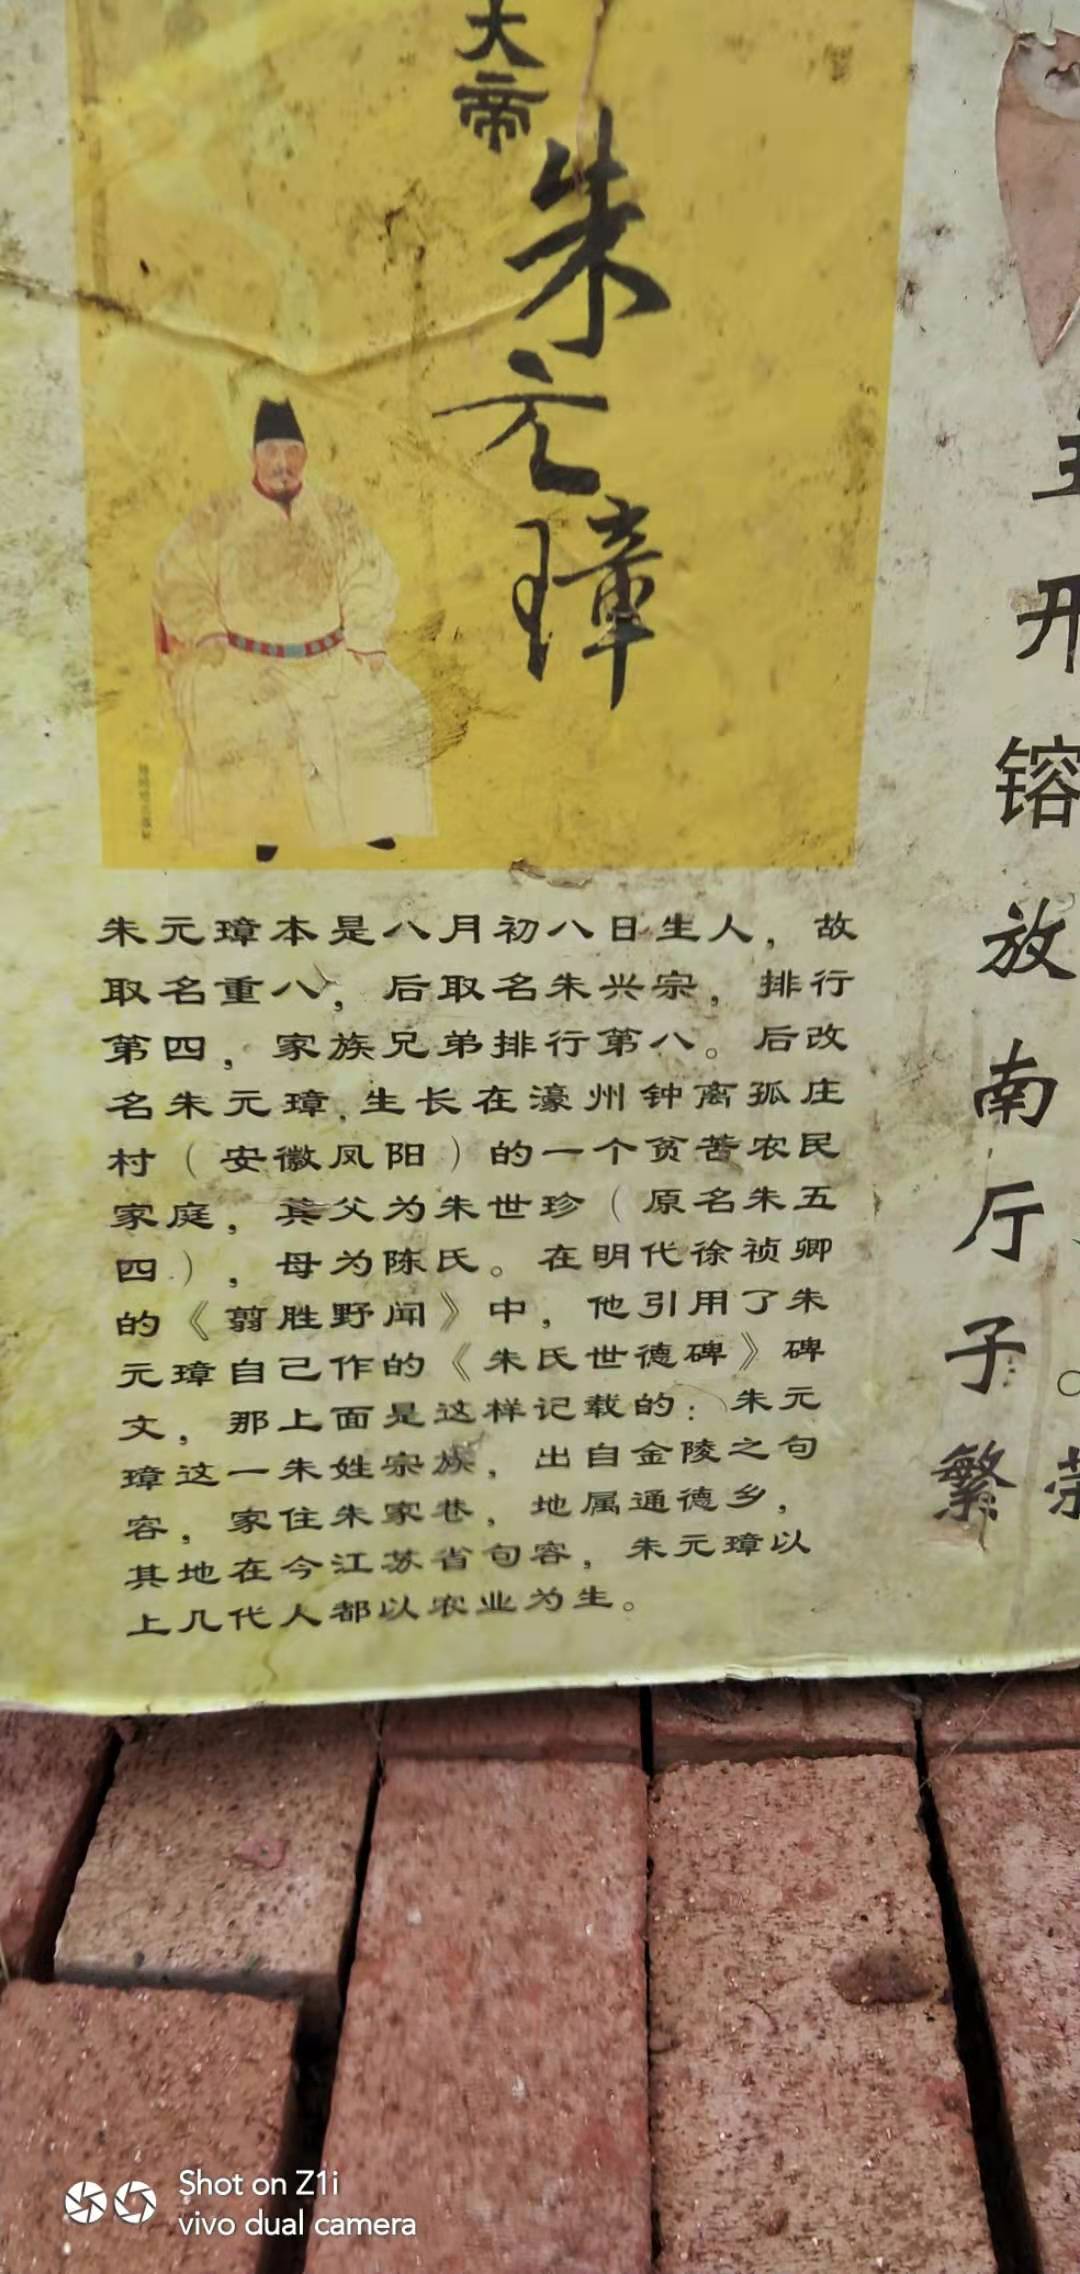 大帝
朱元璋
朱元璋本是八月初八日生人，故
取名重八，后取名朱兴宗，排行
第四，家族兄弟排行第八。后改
名朱元璋.生长在濠州钟离孤庄
村（安徽凤阳）的一个贫苦农民
家庭，其父为朱世珍（原名朱五
四），母为陈氏。在明代徐祯卿
的《翦胜野闻》中，他引用了朱
元璋自己作的《朱氏世德碑》碑
文，那上面是这样记载的：朱元
璋这一朱姓宗族，出自金陵之句
容，家住朱家巷，地属通德乡，
其地在今江苏省句容，朱元璋以
上几代人都以农业为生。
开镕放南厅子繁
Shot on Z1i
vivo dual camera